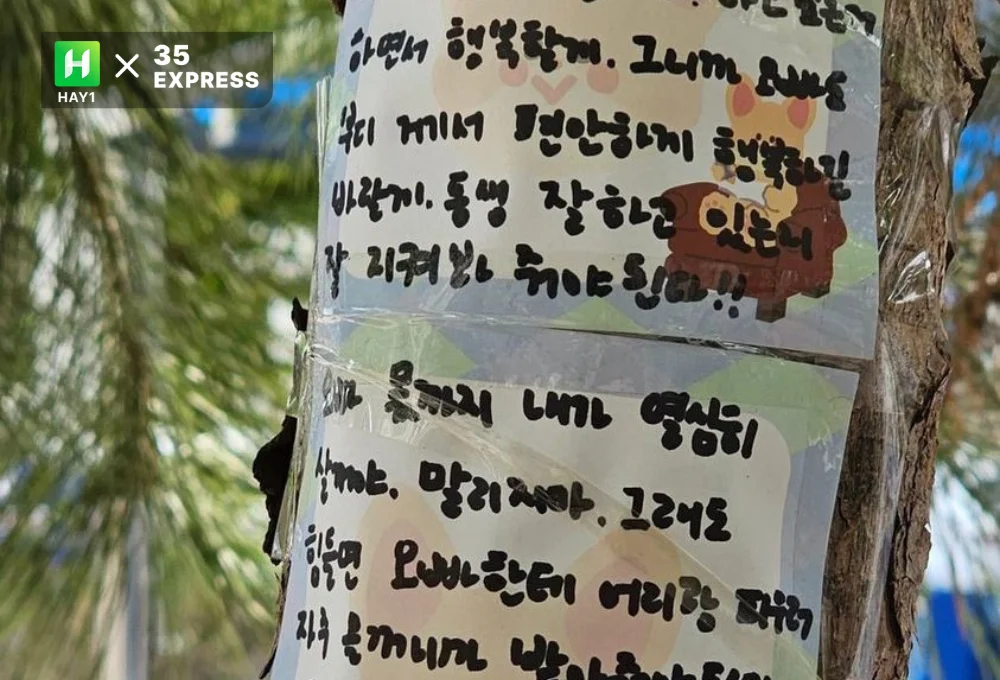 H × 35 EXPRESS
HAY1
하면서 행복할게. 그니까 오빠도
부디 거기서 편안하게 행복하길
바랄게. 동생 잘하고 있는지
잘 지켜봐 줘야 된다!!
오빠 몫까지 내가 열심히
살꺼야. 말리지마. 그래도
힘들면 오빠한테 어리광 피우러
자주 올꺼니까